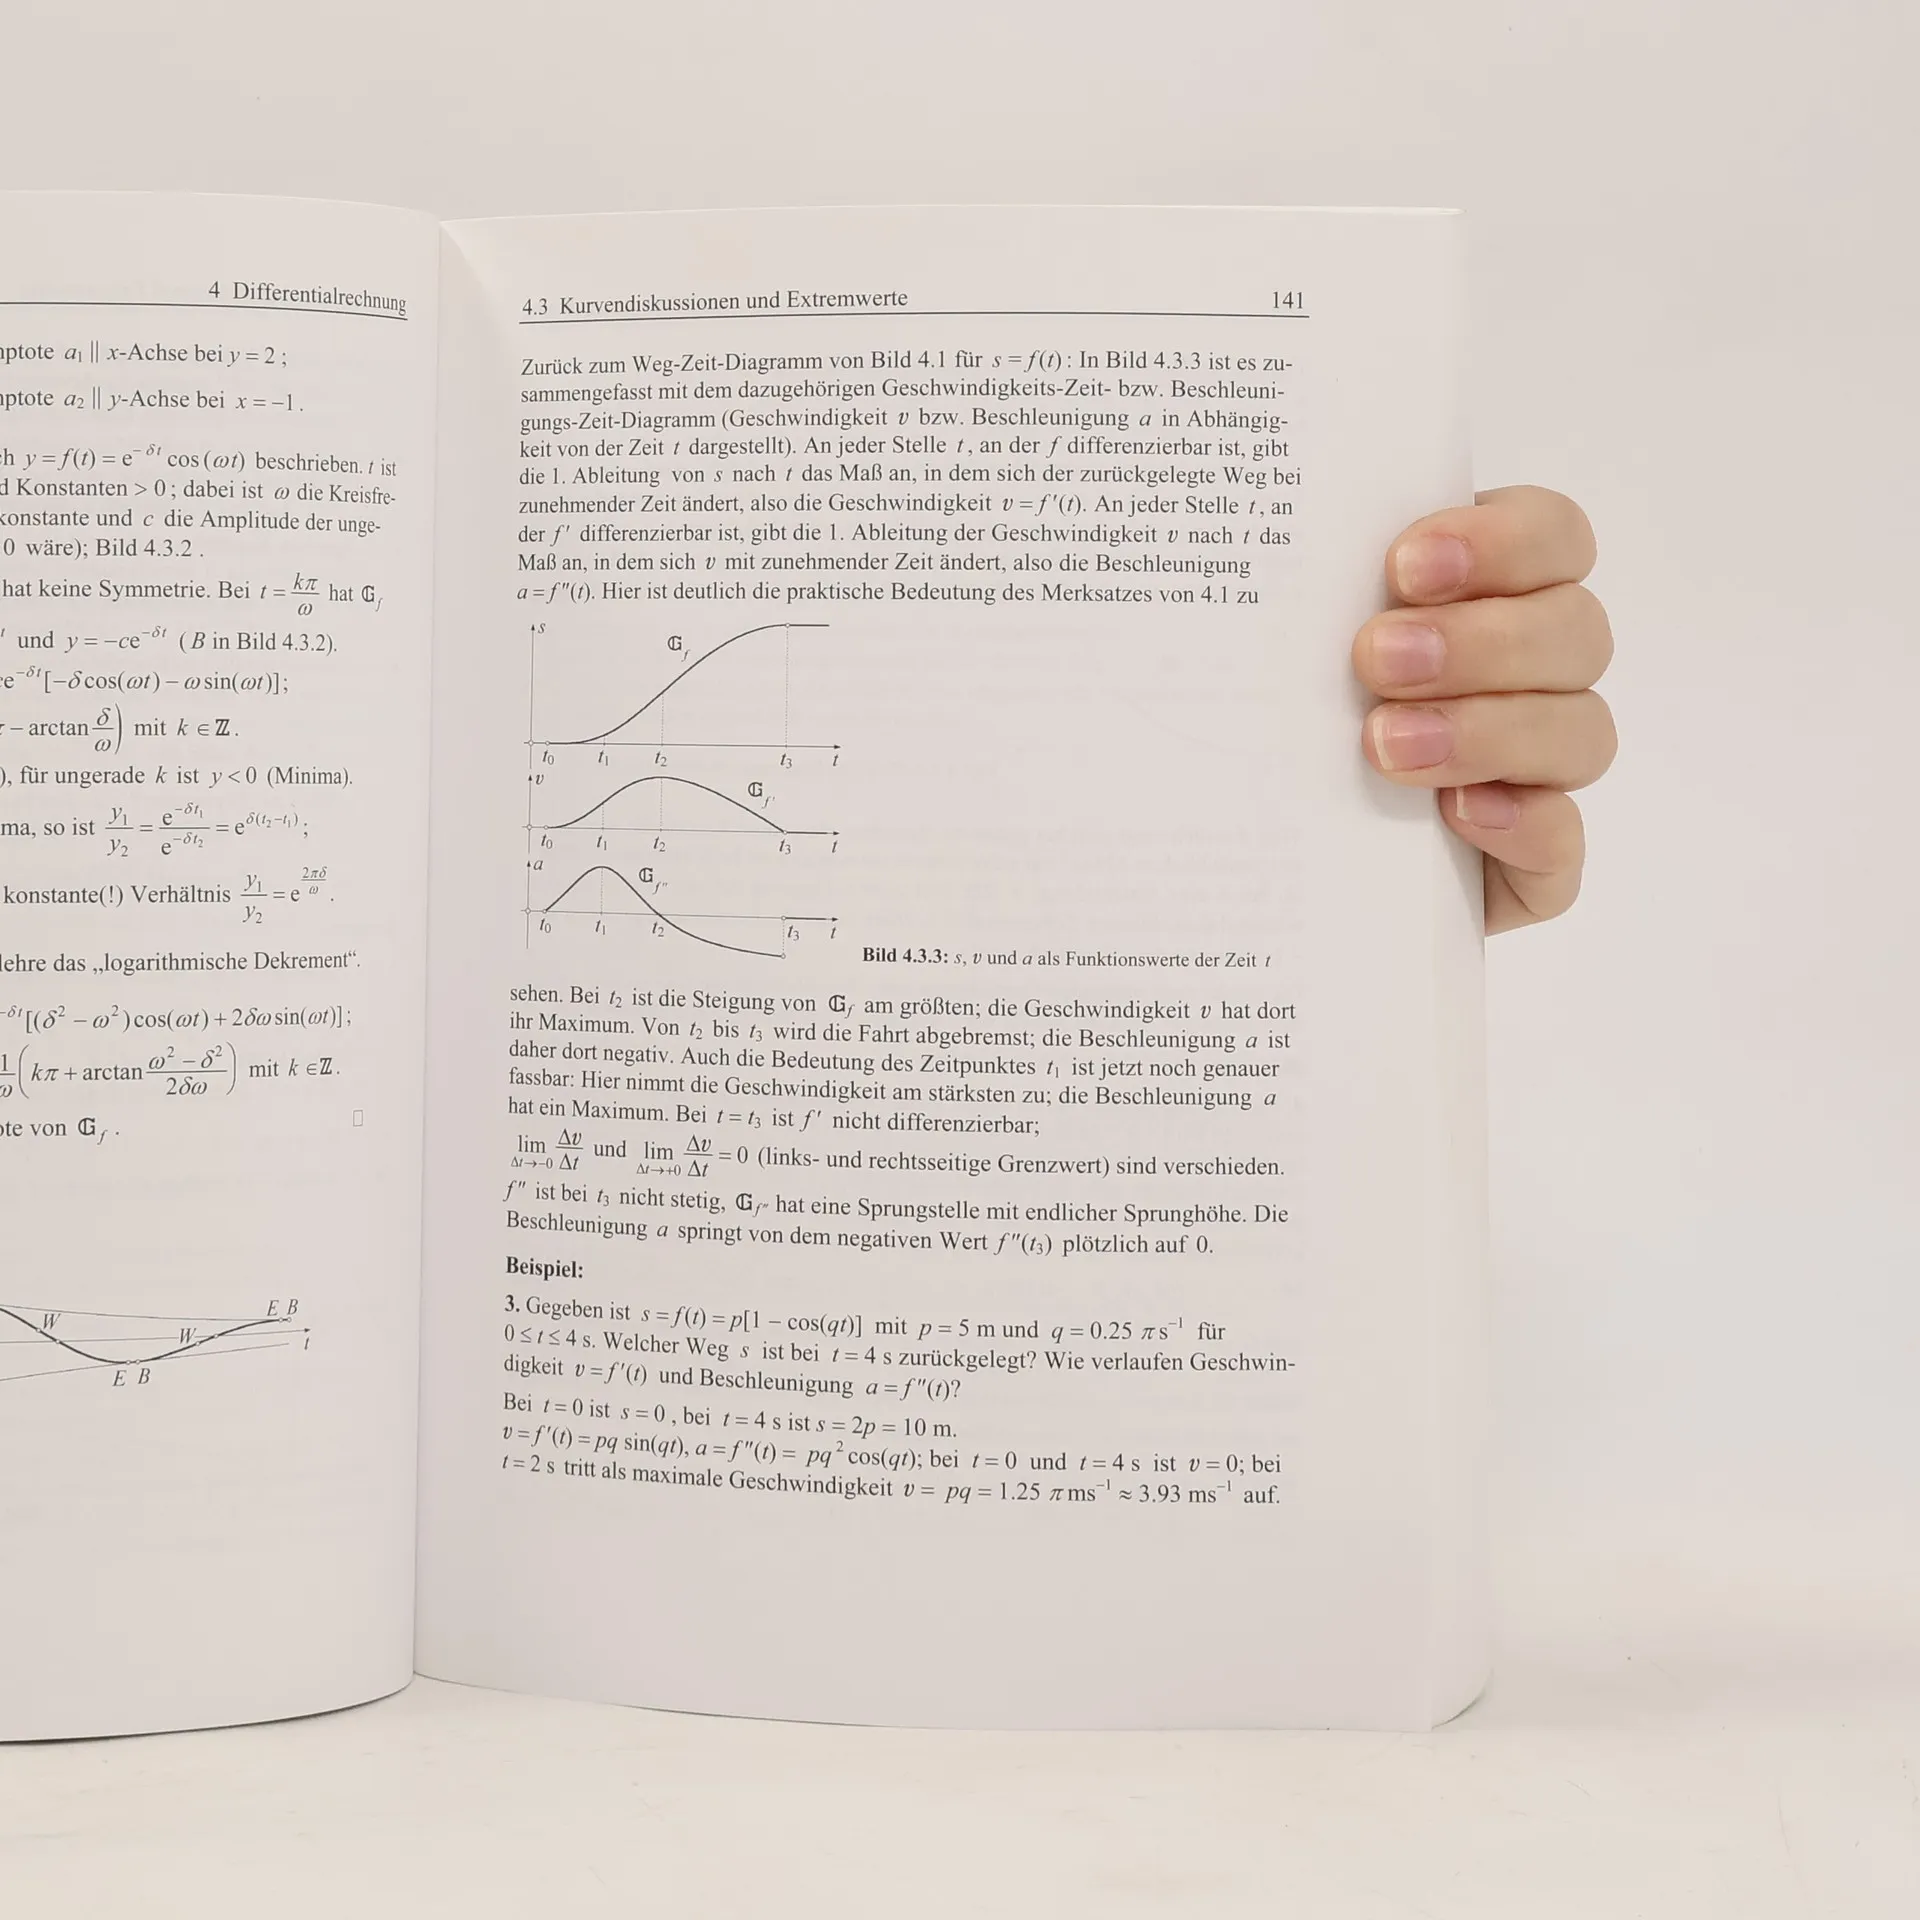 4 Differentialrechnung
ptote a₁ || x-Achse bei y = 2 ;
ptote a₂ || y-Achse bei x = −1 .
y = f(t) = e^(−δt) cos (ωt) beschrieben. t ist
Konstanten > 0 ; dabei ist ω die Kreisfre-
konstante und c die Amplitude der unge-
0 wäre); Bild 4.3.2 .
hat keine Symmetrie. Bei t = kπ/ω hat 𝔾_f
und y = −ce^(−δt) ( B in Bild 4.3.2).
e^(−δt)[−δcos(ωt) − ωsin(ωt)];
− arctan δ/ω) mit k ∈ ℤ .
), für ungerade k ist y < 0 (Minima).
ma, so ist y₁/y₂ = e^(−δt₁)/e^(−δt₂) = e^(δ(t₂−t₁)) ;
konstante(!) Verhältnis y₁/y₂ = e^(2πδ/ω) .
lehre das „logarithmische Dekrement“.
^(−δt)[(δ² − ω²)cos(ωt) + 2δω sin(ωt)];
1/ω (kπ + arctan (ω² − δ²)/(2δω)) mit k ∈ ℤ .
ote von 𝔾_f .
W
W
E B
E B
t
4.3 Kurvendiskussionen und Extremwerte 141
Zurück zum Weg-Zeit-Diagramm von Bild 4.1 für s = f(t) : In Bild 4.3.3 ist es zu-
sammengefasst mit dem dazugehörigen Geschwindigkeits-Zeit- bzw. Beschleuni-
gungs-Zeit-Diagramm (Geschwindigkeit v bzw. Beschleunigung a in Abhängig-
keit von der Zeit t dargestellt). An jeder Stelle t , an der f differenzierbar ist, gibt
die 1. Ableitung von s nach t das Maß an, in dem sich der zurückgelegte Weg bei
zunehmender Zeit ändert, also die Geschwindigkeit v = f'(t). An jeder Stelle t , an
der f' differenzierbar ist, gibt die 1. Ableitung der Geschwindigkeit v nach t das
Maß an, in dem sich v mit zunehmender Zeit ändert, also die Beschleunigung
a = f"(t). Hier ist deutlich die praktische Bedeutung des Merksatzes von 4.1 zu
s
𝔾_f
t₀ t₁ t₂ t₃ t
v
𝔾_f'
t₀ t₁ t₂ t₃ t
a
𝔾_f"
t₀ t₁ t₂ t₃ t
Bild 4.3.3: s, v und a als Funktionswerte der Zeit t
sehen. Bei t₂ ist die Steigung von 𝔾_f am größten; die Geschwindigkeit v hat dort
ihr Maximum. Von t₂ bis t₃ wird die Fahrt abgebremst; die Beschleunigung a ist
daher dort negativ. Auch die Bedeutung des Zeitpunktes t₁ ist jetzt noch genauer
fassbar: Hier nimmt die Geschwindigkeit am stärksten zu; die Beschleunigung a
hat ein Maximum. Bei t = t₃ ist f' nicht differenzierbar;
lim Δt→−0 Δv/Δt und lim Δt→+0 Δv/Δt = 0 (links- und rechtsseitige Grenzwert) sind verschieden.
f" ist bei t₃ nicht stetig, 𝔾_f" hat eine Sprungstelle mit endlicher Sprunghöhe. Die
Beschleunigung a springt von dem negativen Wert f"(t₃) plötzlich auf 0.
Beispiel:
3. Gegeben ist s = f(t) = p[1 − cos(qt)] mit p = 5 m und q = 0.25 π s⁻¹ für
0 ≤ t ≤ 4 s. Welcher Weg s ist bei t = 4 s zurückgelegt? Wie verlaufen Geschwin-
digkeit v = f'(t) und Beschleunigung a = f"(t)?
Bei t = 0 ist s = 0 , bei t = 4 s ist s = 2p = 10 m.
v = f'(t) = pq sin(qt), a = f"(t) = pq² cos(qt); bei t = 0 und t = 4 s ist v = 0; bei
t = 2 s tritt als maximale Geschwindigkeit v = pq = 1.25 π ms⁻¹ ≈ 3.93 ms⁻¹ auf.